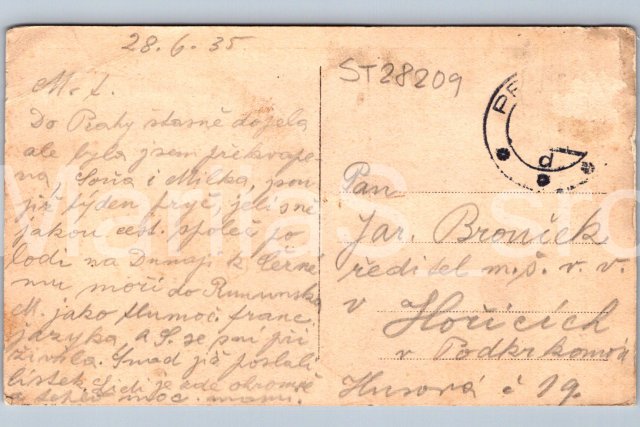 28.6.35
ST28209
PR
d
M. t.
Do Prahy štasně dojela
ale byla jsem překvape-
na, Soňa i Milka, jsou
již týden pryč, jeli s ně
jakou cest. společ. po
lodi na Dunaji k Černé
mu moři do Rumunska
M. jako tlumoč. franc.
jazyka, a S. se s ní při
živila. Snad již poslali
lístek. Lidi je zde ohromě
a teplo moc. mámi.
Pan
Jar. Broníček
ředitel m. š. v. v.
v Hořicích
v Podkrkonoší
Husová č 19.